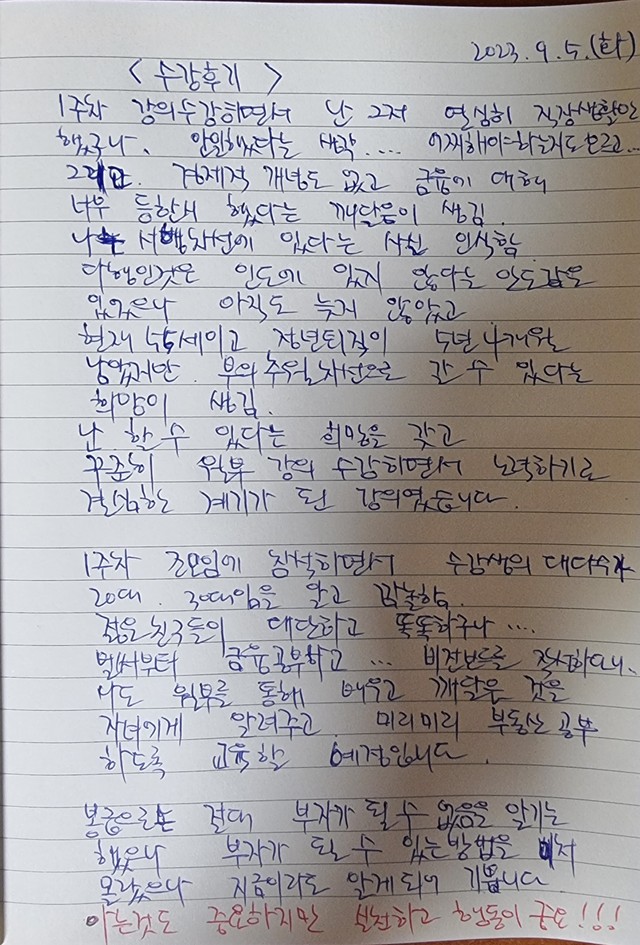 2023. 9. 5. (화)
< 수강후기 >
1주차 강의수강하면서 난 그저 열심히 직장생활만
했구나. 안일했다는 생각.... 어찌해야하는지도 모르고...
그리고. 경제적 개념도 없고 금융에 대해
너무 등한시 했다는 깨달음이 생김.
나는 서행차선에 있다는 사실 인식함.
다행인것은 인도에 있지 않다는 안도감은
있었으나 아직도 늦지 않았고
현재 55세이고 정년퇴직이 5년 4개월
남았지만. 부의 추월차선으로 갈 수 있다는
희망이 생김.
난 할 수 있다는 희망을 갖고
꾸준히 월부 강의 수강하면서 노력하기로
결심하는 계기가 된 강의였습니다.
1주차 조모임에 참석하면서 수강생의 대다수가
20대. 30대임을 알고 깜놀함.
젊은 친구들이 대단하고 똑똑하구나....
벌써부터 금융공부하고... 비전보드를 작성하다니..
나도 월부를 통해 배우고 깨달은 것을
자녀에게 알려주고. 미리미리 부동산 공부
하도록 교육할 예정입니다.
봉급으로는 절대 부자가 될 수 없음을 알기는
했으나 부자가 될 수 있는 방법을
몰랐으나 지금이라도 알게되어 기쁩니다.
아는것도 중요하지만 실천하고 행동이 중요!!!